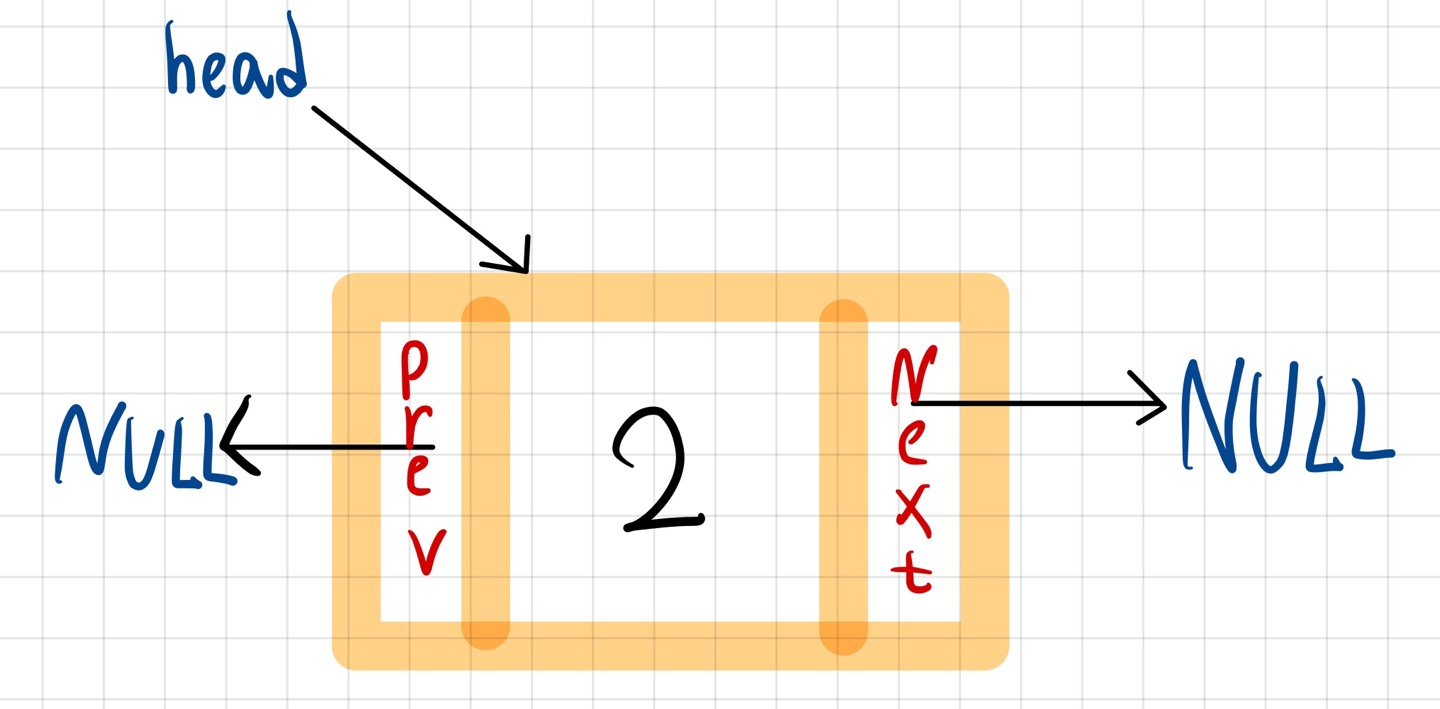 head
NULL
prev
2
Next
NULL